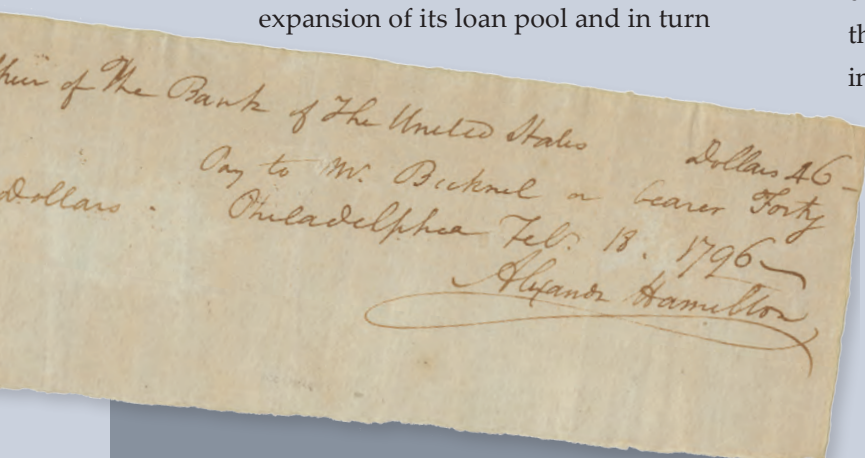 expansion of its loan pool and in turn
th
in
of The Bank of The United States Dollars 46–
Pay to Mr. Bicknel or bearer Forty
Dollars. Philadelphia Feb. 18. 1796
Alexandr Hamilton